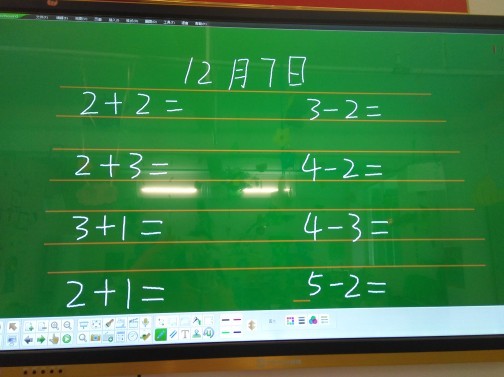 12月7日
2+2= 3-2=
2+3= 4-2=
3+1= 4-3=
2+1= 5-2=